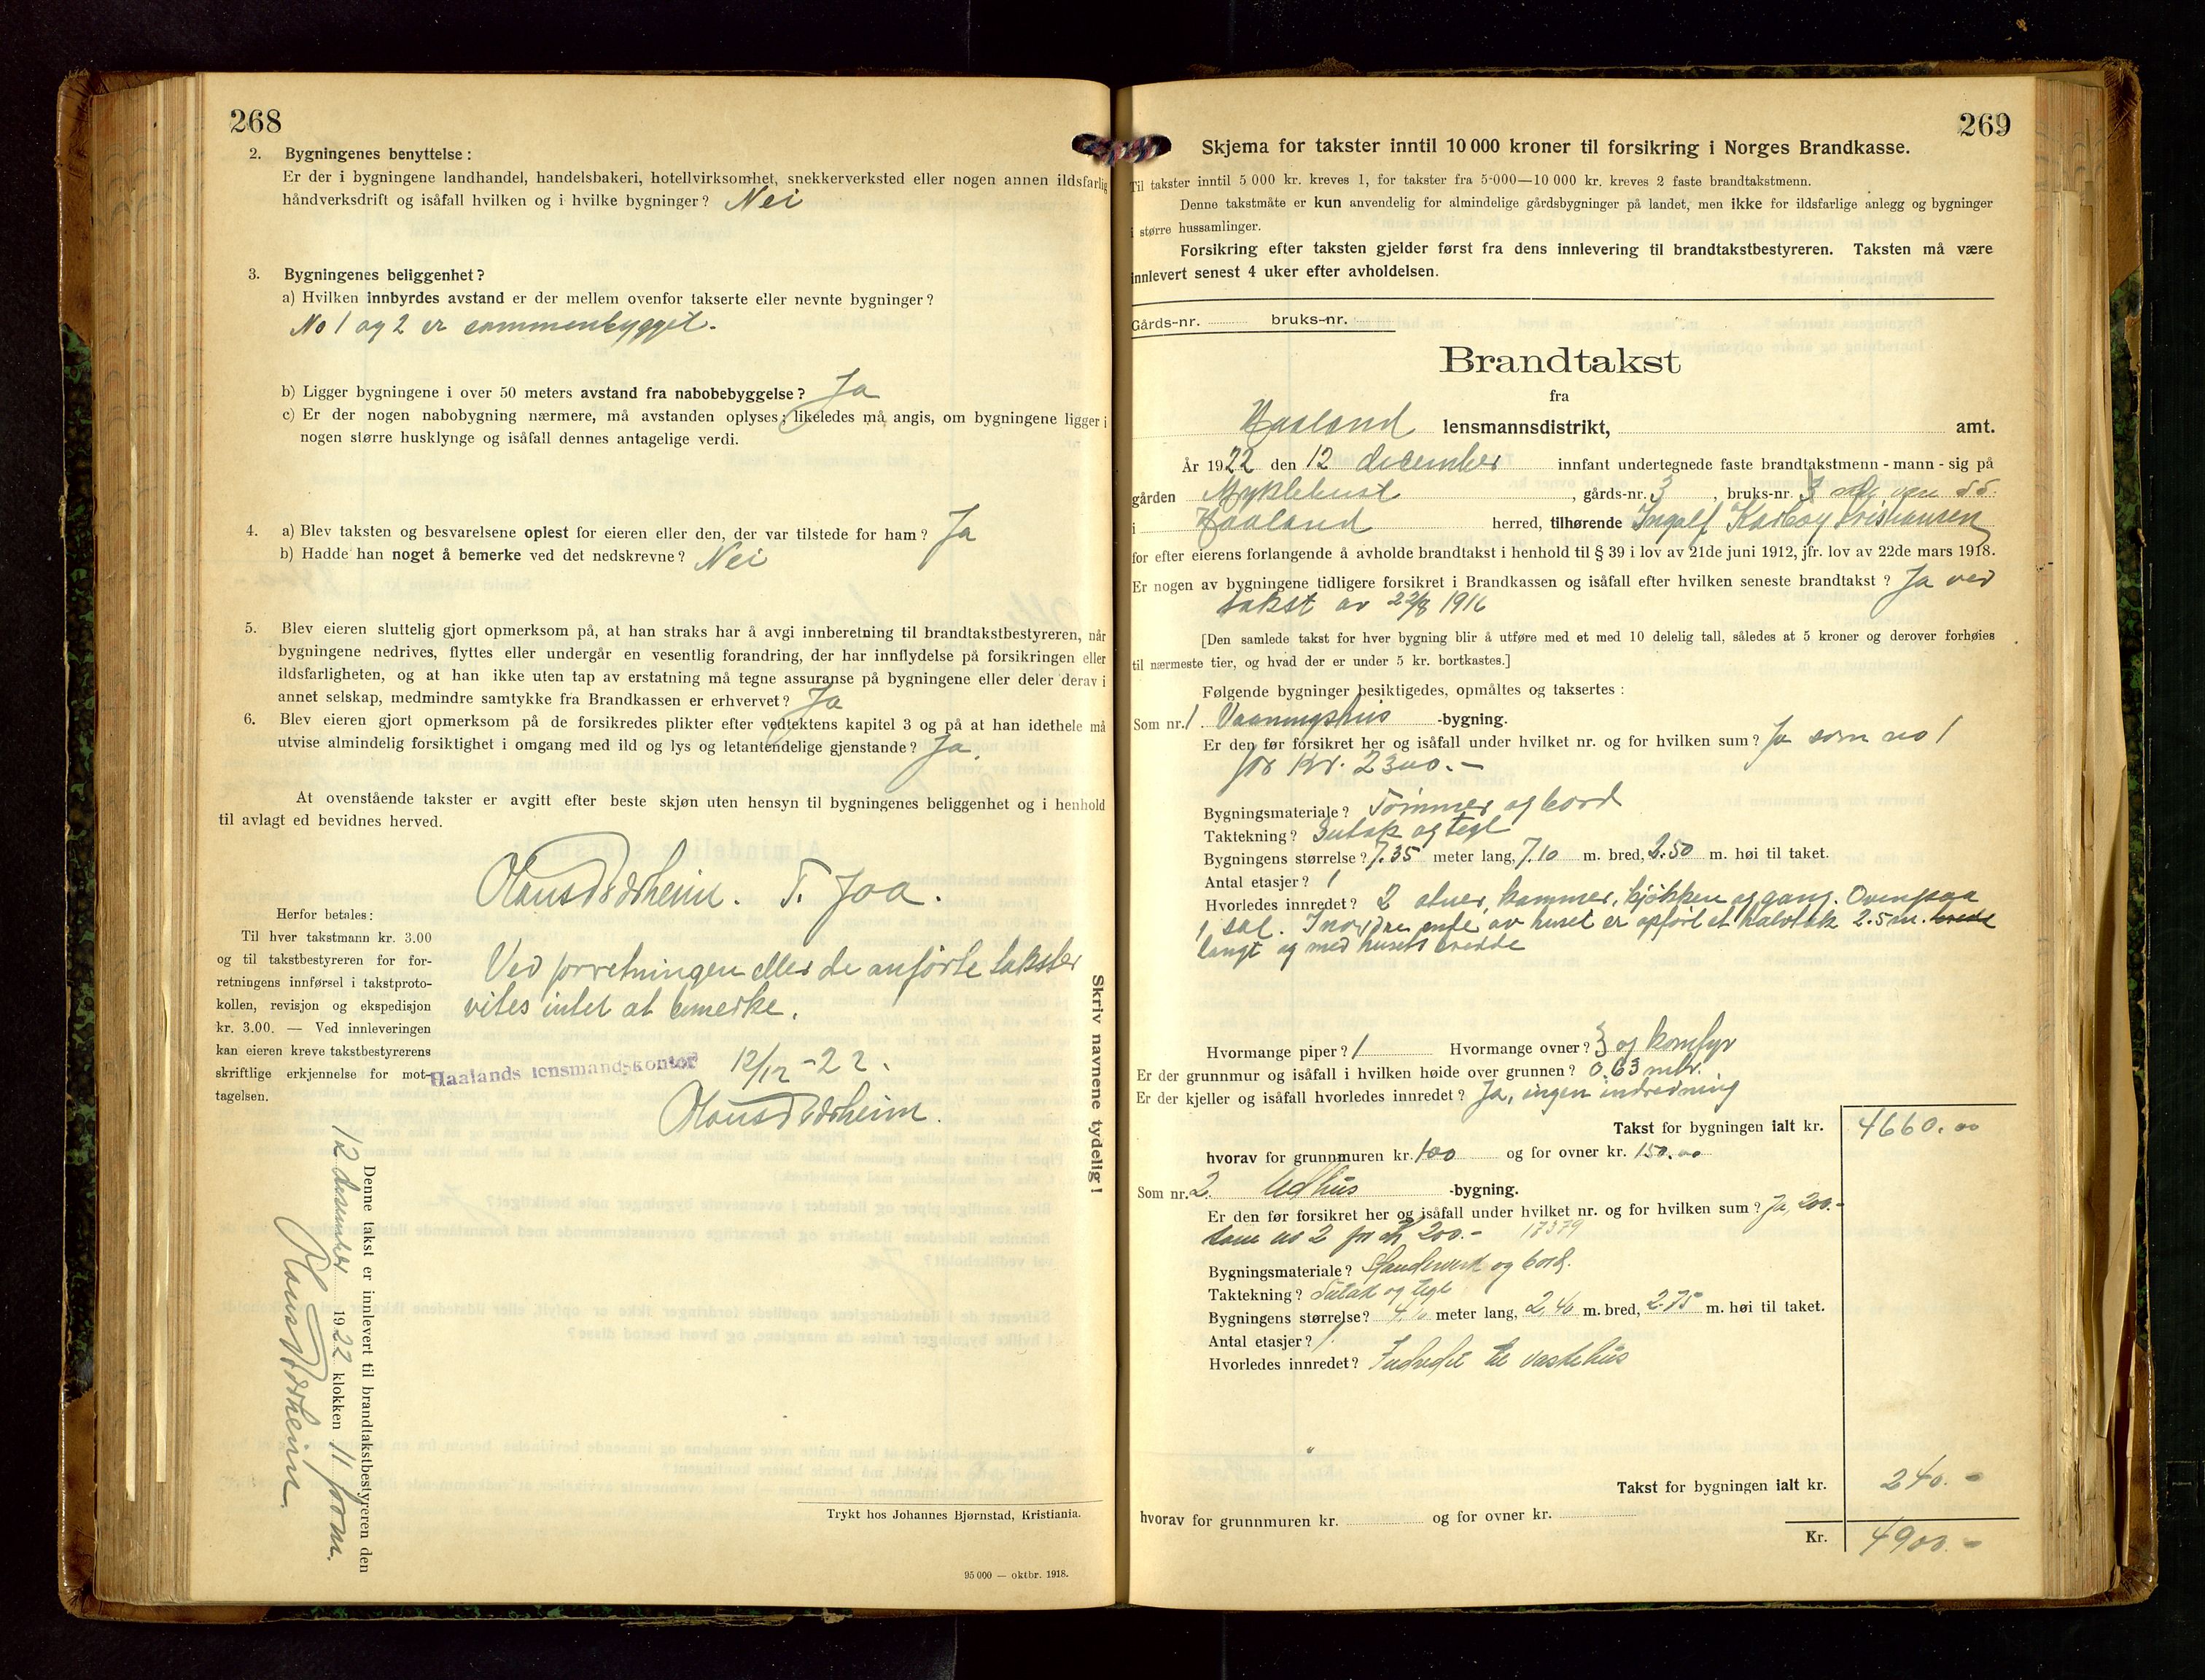 268
2. Bygningenes benyttelse:
Er der i bygningene landhandel, handelsbakeri, hotellvirksomhet, snekkerverksted eller nogen annen ildsfarlig
håndverksdrift og isåfall hvilken og i hvilke bygninger? Nei
3. Bygningenes beliggenhet?
a) Hvilken innbyrdes avstand er der mellem ovenfor takserte eller nevnte bygninger?
No 1 og 2 er sammenbygget.
b) Ligger bygningene i over 50 meters avstand fra nabobebyggelse? Ja
c) Er der nogen nabobygning nærmere, må avstanden oplyses; likeledes må angis, om bygningene ligger i
nogen større husklynge og isåfall dennes antagelige verdi.
4. a) Blev taksten og besvarelsene oplest for eieren eller den, der var tilstede for ham? Ja
b) Hadde han noget å bemerke ved det nedskrevne? Nei
5. Blev eieren sluttelig gjort opmerksom på, at han straks har å avgi innberetning til brandtakstbestyreren, når
bygningene nedrives, flyttes eller undergår en vesentlig forandring, der har innflydelse på forsikringen eller
ildsfarligheten, og at han ikke uten tap av erstatning må tegne assuranse på bygningene eller deler derav i
annet selskap, medmindre samtykke fra Brandkassen er erhvervet? Ja
6. Blev eieren gjort opmerksom på de forsikredes plikter efter vedtektens kapitel 3 og på at han idethele må
utvise almindelig forsiktighet i omgang med ild og lys og letantendelige gjenstande? Ja
At ovenstående takster er avgitt efter beste skjøn uten hensyn til bygningenes beliggenhet og i henhold
til avlagt ed bevidnes herved.
T. Joa.
Herfor betales:
Til hver takstmann kr. 3.00
og til takstbestyreren for for-
retningens innførsel i takstproto-
kollen, revisjon og ekspedisjon
kr. 3.00. — Ved innleveringen
kan eieren kreve takstbestyrerens
skriftlige erkjennelse for mot-
tagelsen.
Ved forretningen eller de anførte takster
vites intet at bemerke.
Haalands lensmandskontor 12/12-22.
Skriv navnene tydelig!
Denne takst er innlevert til brandtakstbestyreren den
12 desember 1922 klokken 11 form.
Trykt hos Johannes Bjørnstad, Kristiania.
95 000 — oktbr. 1918.
269
Skjema for takster inntil 10 000 kroner til forsikring i Norges Brandkasse.
Til takster inntil 5 000 kr. kreves 1, for takster fra 5-000—10 000 kr. kreves 2 faste brandtakstmenn.
Denne takstmåte er kun anvendelig for almindelige gårdsbygninger på landet, men ikke for ildsfarlige anlegg og bygninger
i større hussamlinger.
Forsikring efter taksten gjelder først fra dens innlevering til brandtakstbestyreren. Taksten må være
innlevert senest 4 uker efter avholdelsen.
Gårds-nr. bruks-nr.
Brandtakst
fra
Haaland lensmannsdistrikt, amt.
År 1922 den 12 december innfant undertegnede faste brandtakstmenn - mann - sig på
gården Myklebust, gårds-nr. 3, bruks-nr. 3
i Haaland herred, tilhørende Ingolf Karboy Kristiansen
for efter eierens forlangende å avholde brandtakst i henhold til § 39 i lov av 21de juni 1912, jfr. lov av 22de mars 1918.
Er nogen av bygningene tidligere forsikret i Brandkassen og isåfall efter hvilken seneste brandtakst? Ja ved
takst av 22/8 1916
[Den samlede takst for hver bygning blir å utføre med et med 10 delelig tall, således at 5 kroner og derover forhøies
til nærmeste tier, og hvad der er under 5 kr. bortkastes.]
Følgende bygninger besiktigedes, opmåltes og taksertes:
Som nr. 1. Vaaningshus -bygning.
Er den før forsikret her og isåfall under hvilket nr. og for hvilken sum? Ja som no 1
for Kr. 2300.-
Bygningsmateriale? Tømmer og bord
Taktekning? Sutak og tegl
Bygningens størrelse? 7.35 meter lang, 7.10 m. bred, 2.50 m. høi til taket.
Antal etasjer? 1
Hvorledes innredet? 2 stuer, kammer, kjøkken og gang. Ovenpaa
1 sal. I nordre ende av huset er opført et halvtak 2.5 m. brede
langt og med husets bredde
Hvormange piper? 1 Hvormange ovner? 3 og komfyr
Er der grunnmur og isåfall i hvilken høide over grunnen? 0.63 mtr.
Er der kjeller og isåfall hvorledes innredet? Ja, ingen indredning
Takst for bygningen ialt kr. 4660.00
hvorav for grunnmuren kr. 100 og for ovner kr. 150.00
Som nr. 2. Udhus -bygning.
Er den før forsikret her og isåfall under hvilket nr. og for hvilken sum? Ja, 200.-
som no 2 for kr 200.- 17379
Bygningsmateriale? Standerverk og bord.
Taktekning? Sutak og tegl
Bygningens størrelse? meter lang, 2,40 m. bred, 2.75 m. høi til taket.
Antal etasjer? 1
Hvorledes innredet? Indredet til vaskehus
Takst for bygningen ialt kr. 240.-
hvorav for grunnmuren kr. og for ovner kr.
Kr. 4900.-